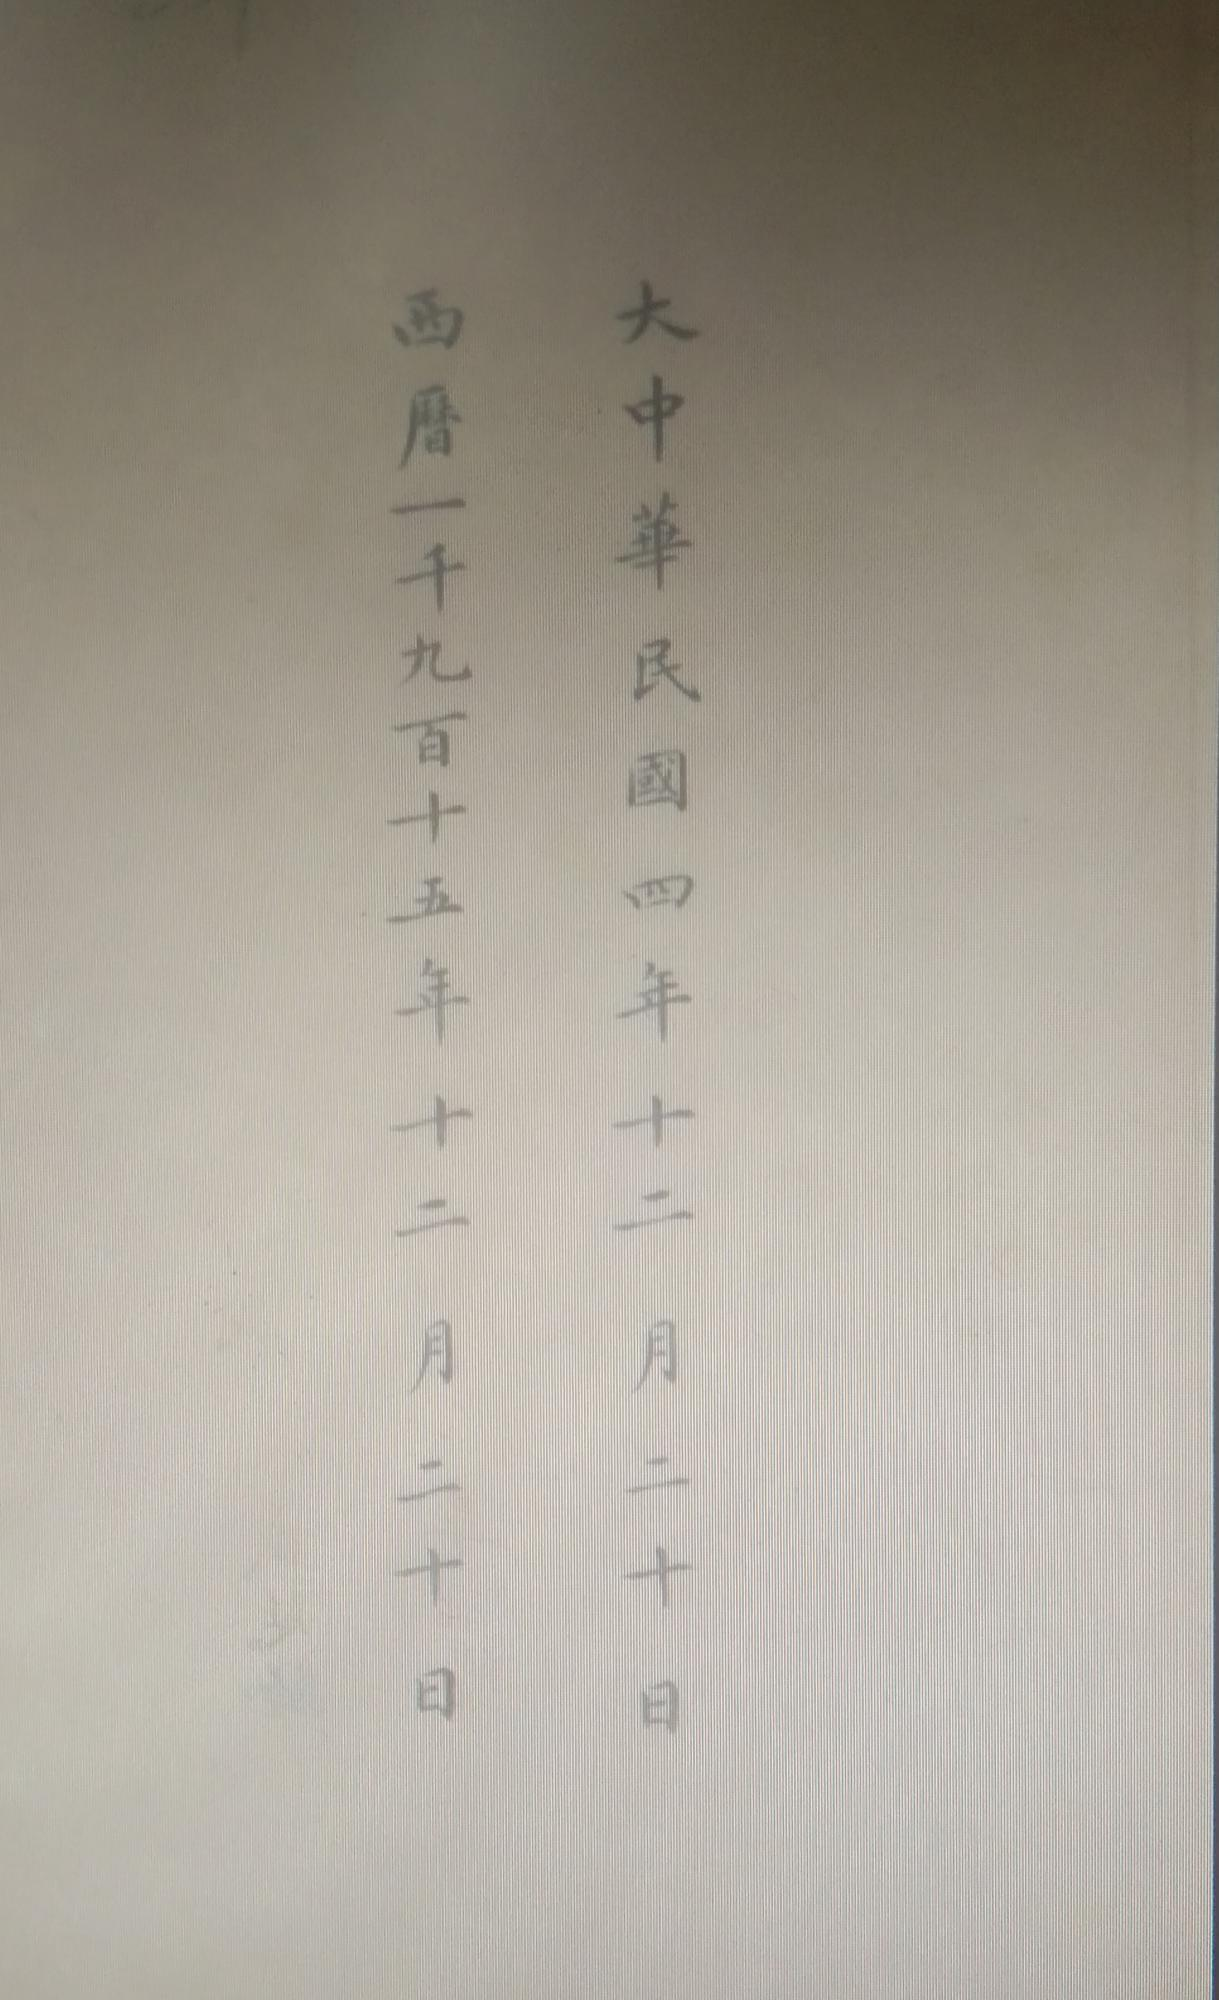 大中華民國四年十二月二十日
西曆一千九百十五年十二月二十日